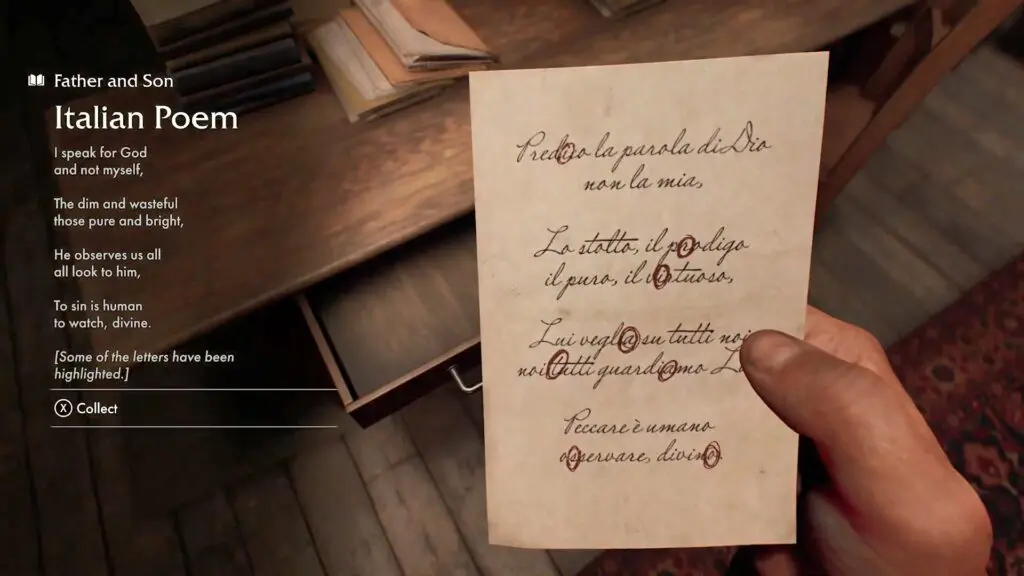 Father and Son
Italian Poem
I speak for God
and not myself,
The dim and wasteful
those pure and bright,
He observes us all
all look to him,
To sin is human
to watch, divine.
[Some of the letters have been
highlighted.]
X Collect
Predico la parola di Dio
non la mia,
Lo stolto, il prodigo
il puro, il virtuoso,
Lui veglia su tutti noi
noi tutti guardiamo
Peccare è umano
osservare, divino